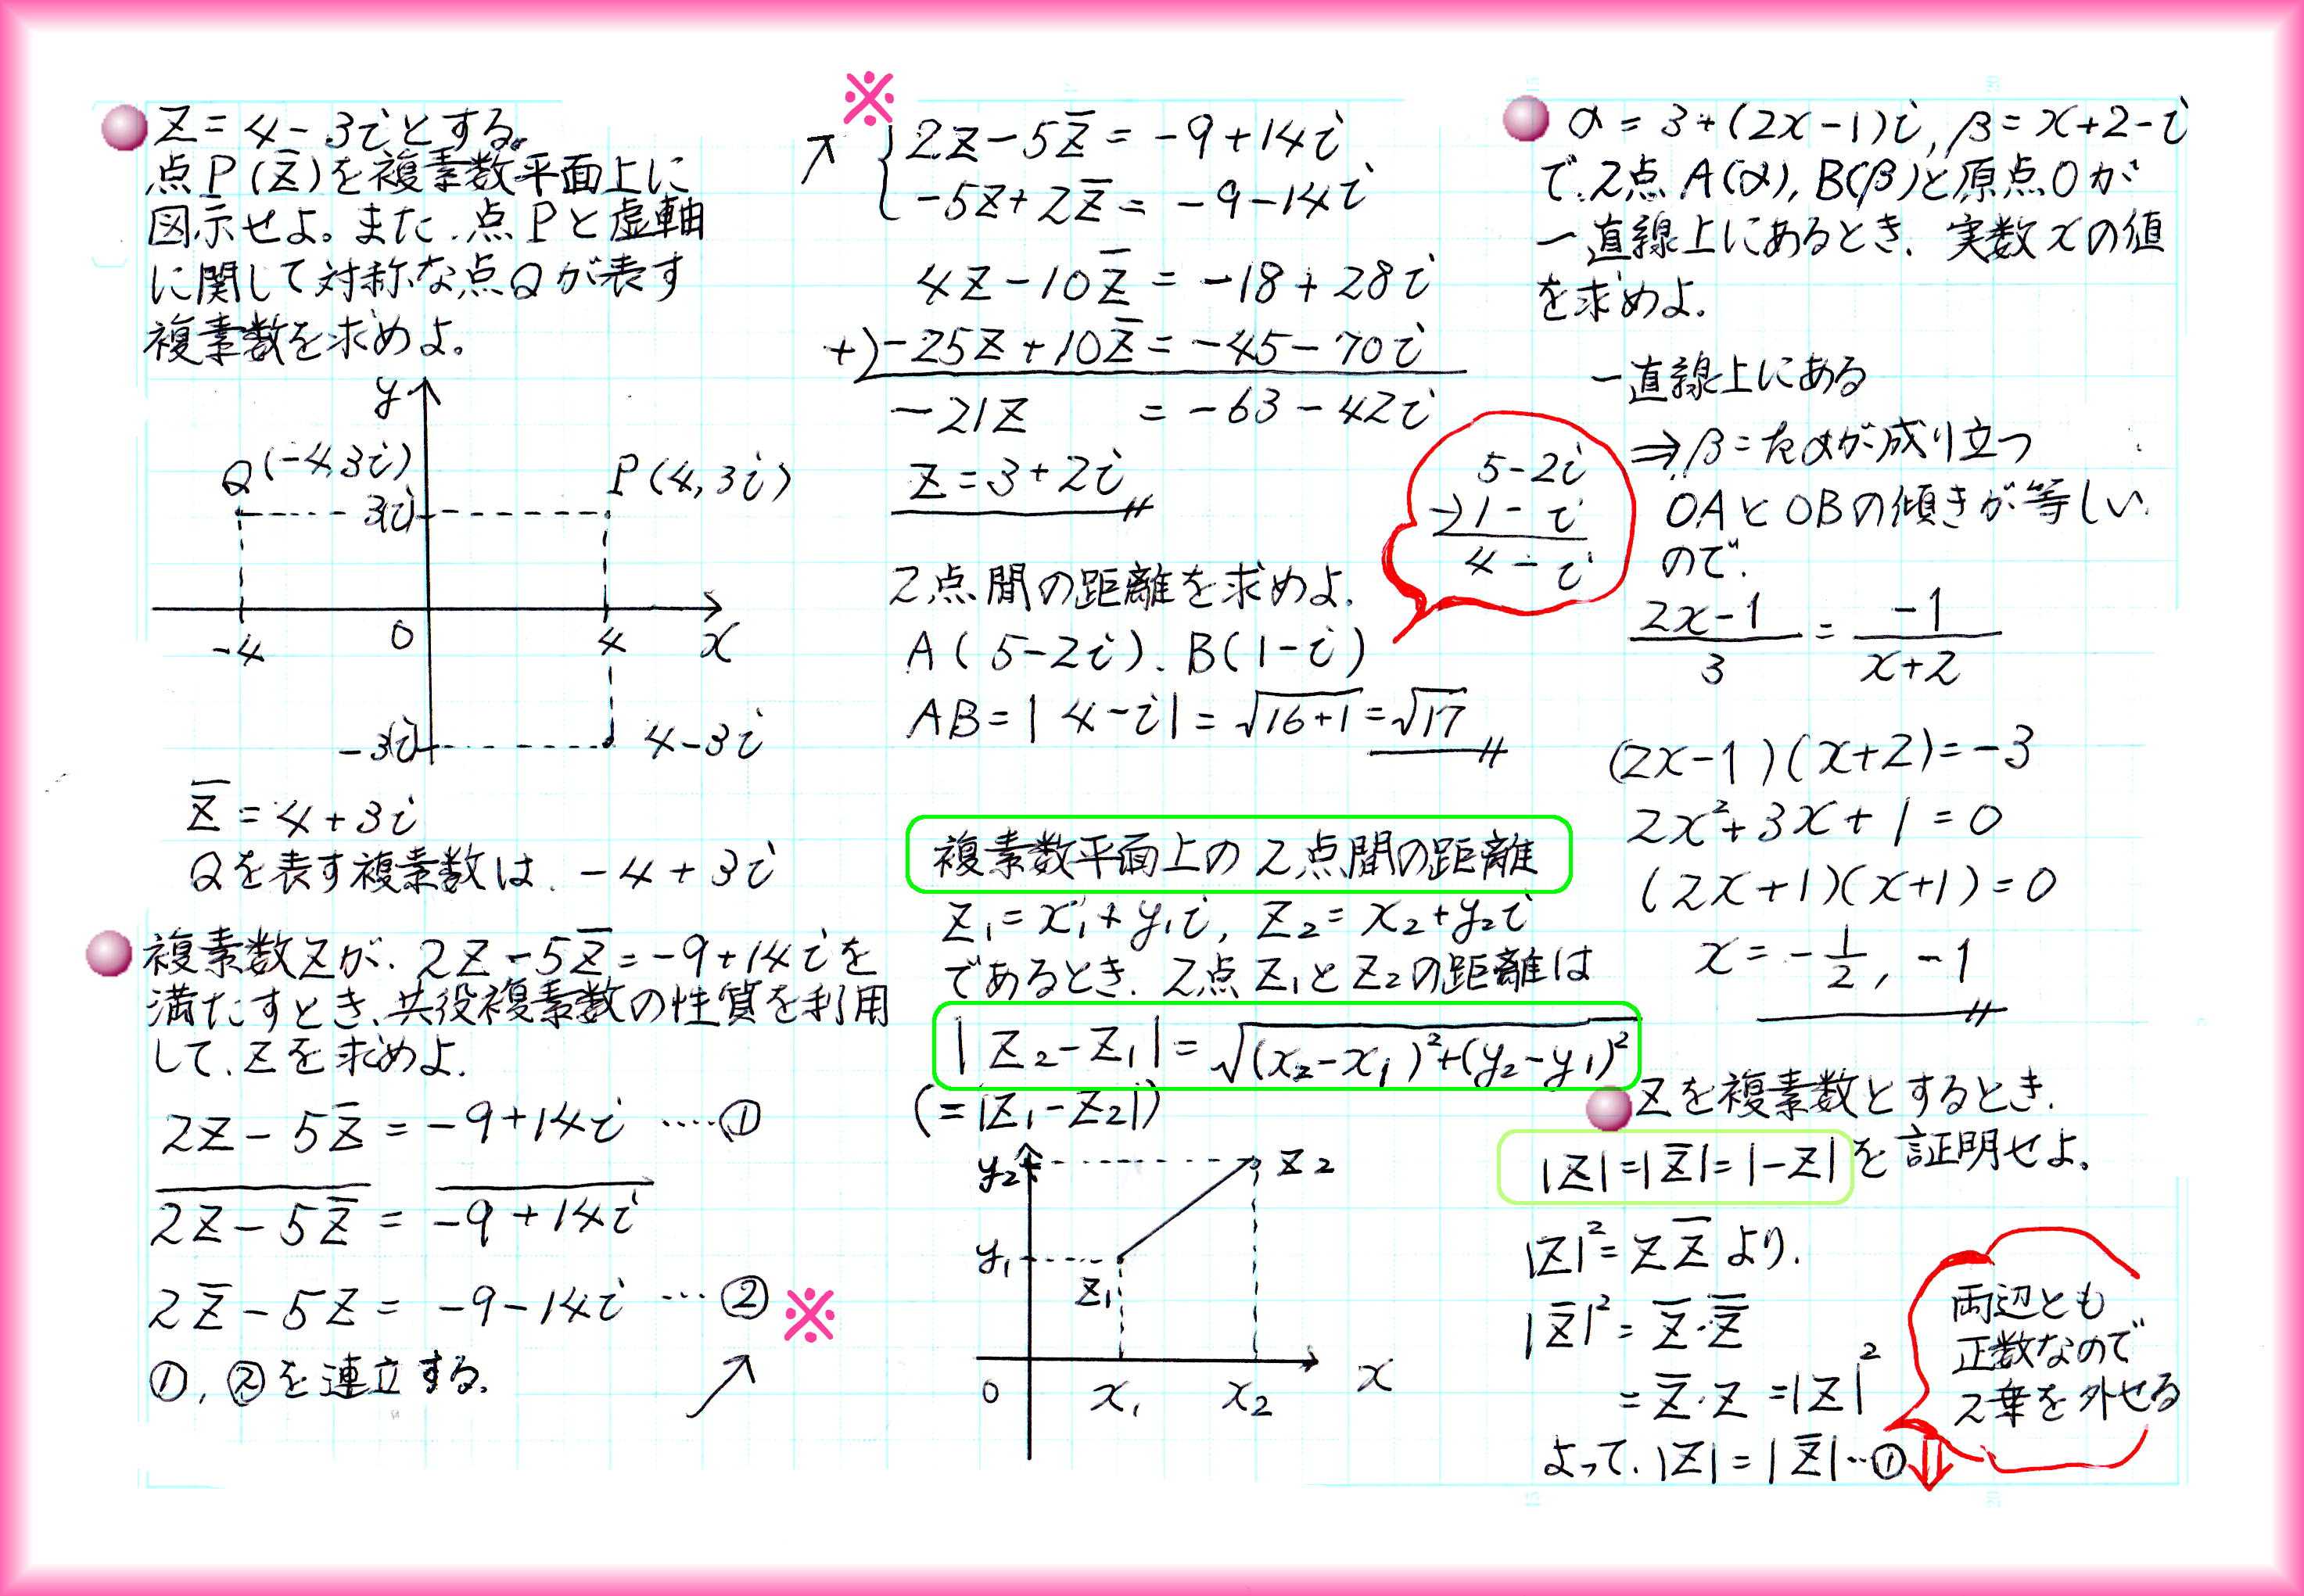 Z=4-3iとする。
点P(z̄)を複素数平面上に
図示せよ。また、点Pと虚軸
に関して対称な点Qが表す
複素数を求めよ。
y
Q(-4,3i)
P(4,3i)
3i
-4
0
4
x
-3i
4-3i
z̄=4+3i
Qを表す複素数は、-4+3i
複素数zが、2z-5z̄=-9+14iを
満たすとき、共役複素数の性質を利用
して、zを求めよ.
2z-5z̄=-9+14i ‥‥①
\overline{2z-5z̄}=\overline{-9+14i}
2z̄-5z=-9-14i …② ※
①,②を連立する. ↗
※
↗ { 2z-5z̄=-9+14i
-5z+2z̄=-9-14i
4z-10z̄=-18+28i
+)-25z+10z̄=-45-70i
-21z =-63-42i
z=3+2i
2点間の距離を求めよ.
A(5-2i).B(1-i)
AB=|4-i|=√(16+1)=√17
5-2i
-)1-i
4-i
複素数平面上の2点間の距離
z₁=x₁+y₁i, z₂=x₂+y₂i
であるとき.2点z₁とz₂の距離は
|z₂-z₁|=√((x₂-x₁)²+(y₂-y₁)²)
(=|z₁-z₂|)
y₂
z₂
y₁
z₁
0
x₁
x₂
x
α=3+(2x-1)i,β=x+2-i
で.2点A(α),B(β)と原点Oが
一直線上にあるとき.実数xの値
を求めよ.
一直線上にある
⇒β=kαが成り立つ
OAとOBの傾きが等しい
ので.
(2x-1)/3=-1/(x+2)
(2x-1)(x+2)=-3
2x²+3x+1=0
(2x+1)(x+1)=0
x=-1/2,-1
zを複素数とするとき.
|z|=|z̄|=|-z|を証明せよ。
|z|²=zz̄より.
|z̄|²=z̄・\overline{z̄}
=z̄・z=|z|²
よって.|z|=|z̄|‥①
両辺とも
正数なので
2乗を外せる